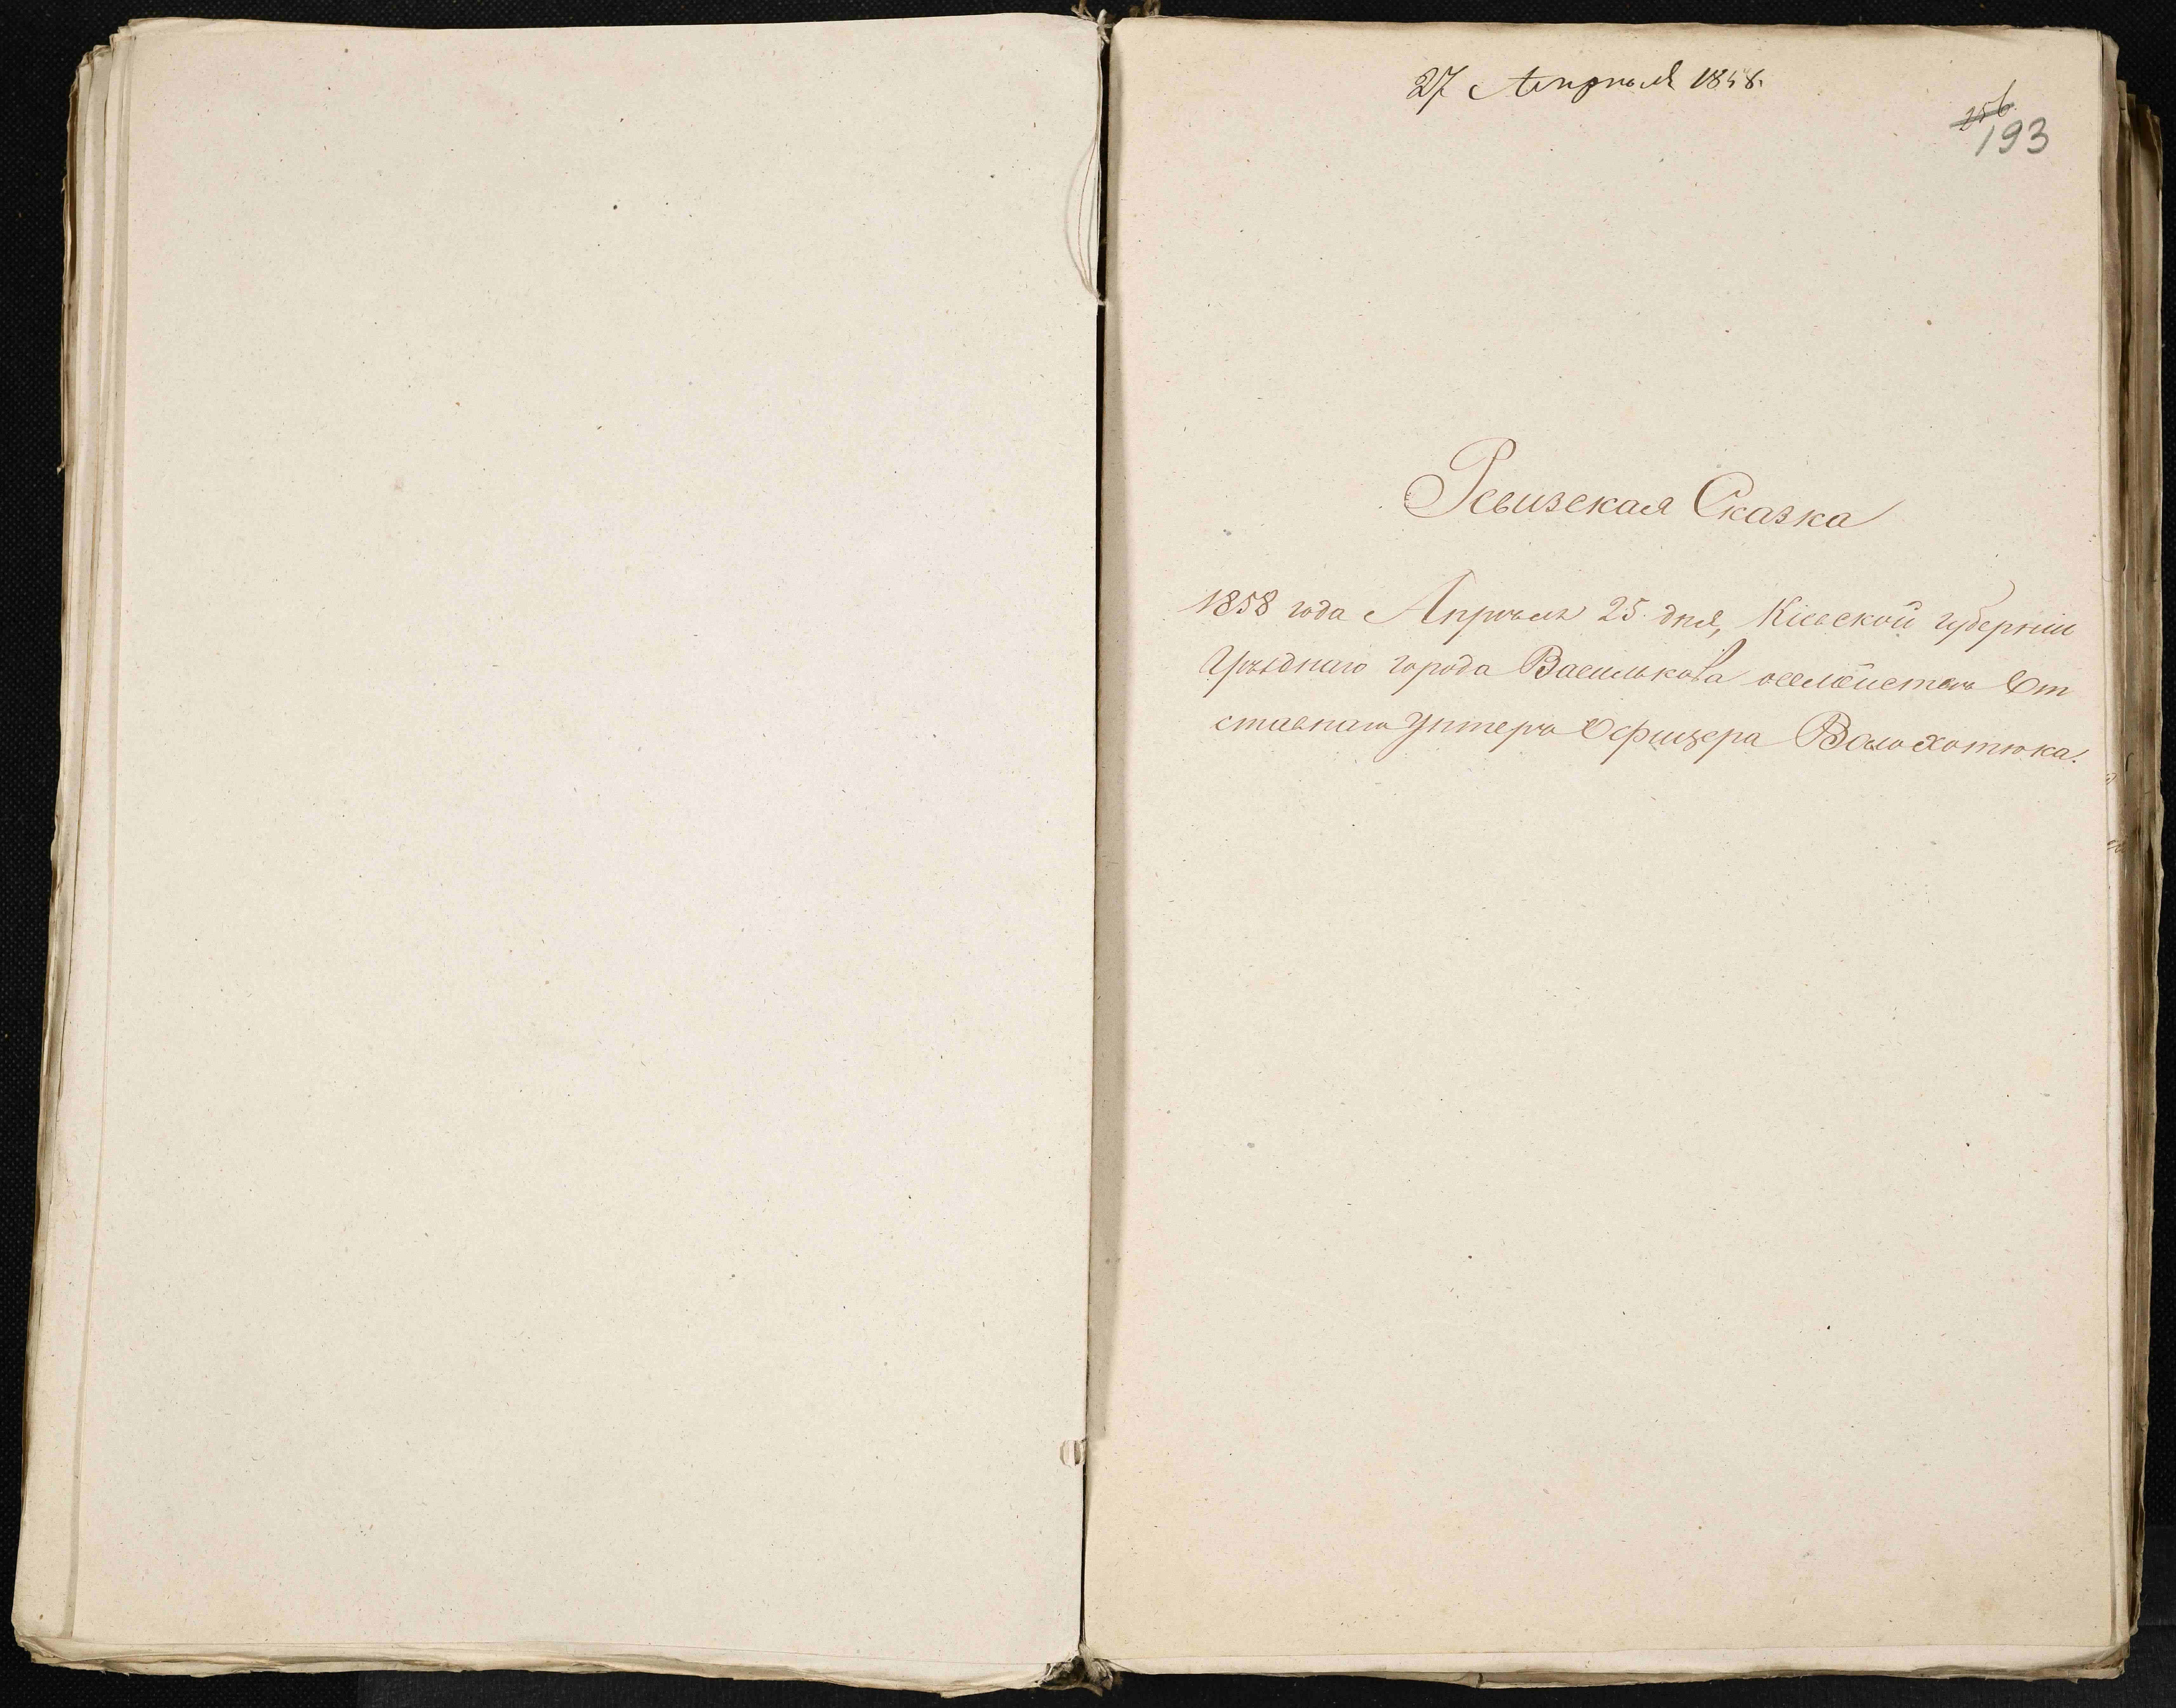 27 Апрѣля 1858.
256
193
Ревизская Сказка
1858 года Апрѣля 25 дня, Кіевской губерніи
Уѣзднаго города Василькова о семействѣ От
ставнаго Унтеръ Офицера Волохотюка.